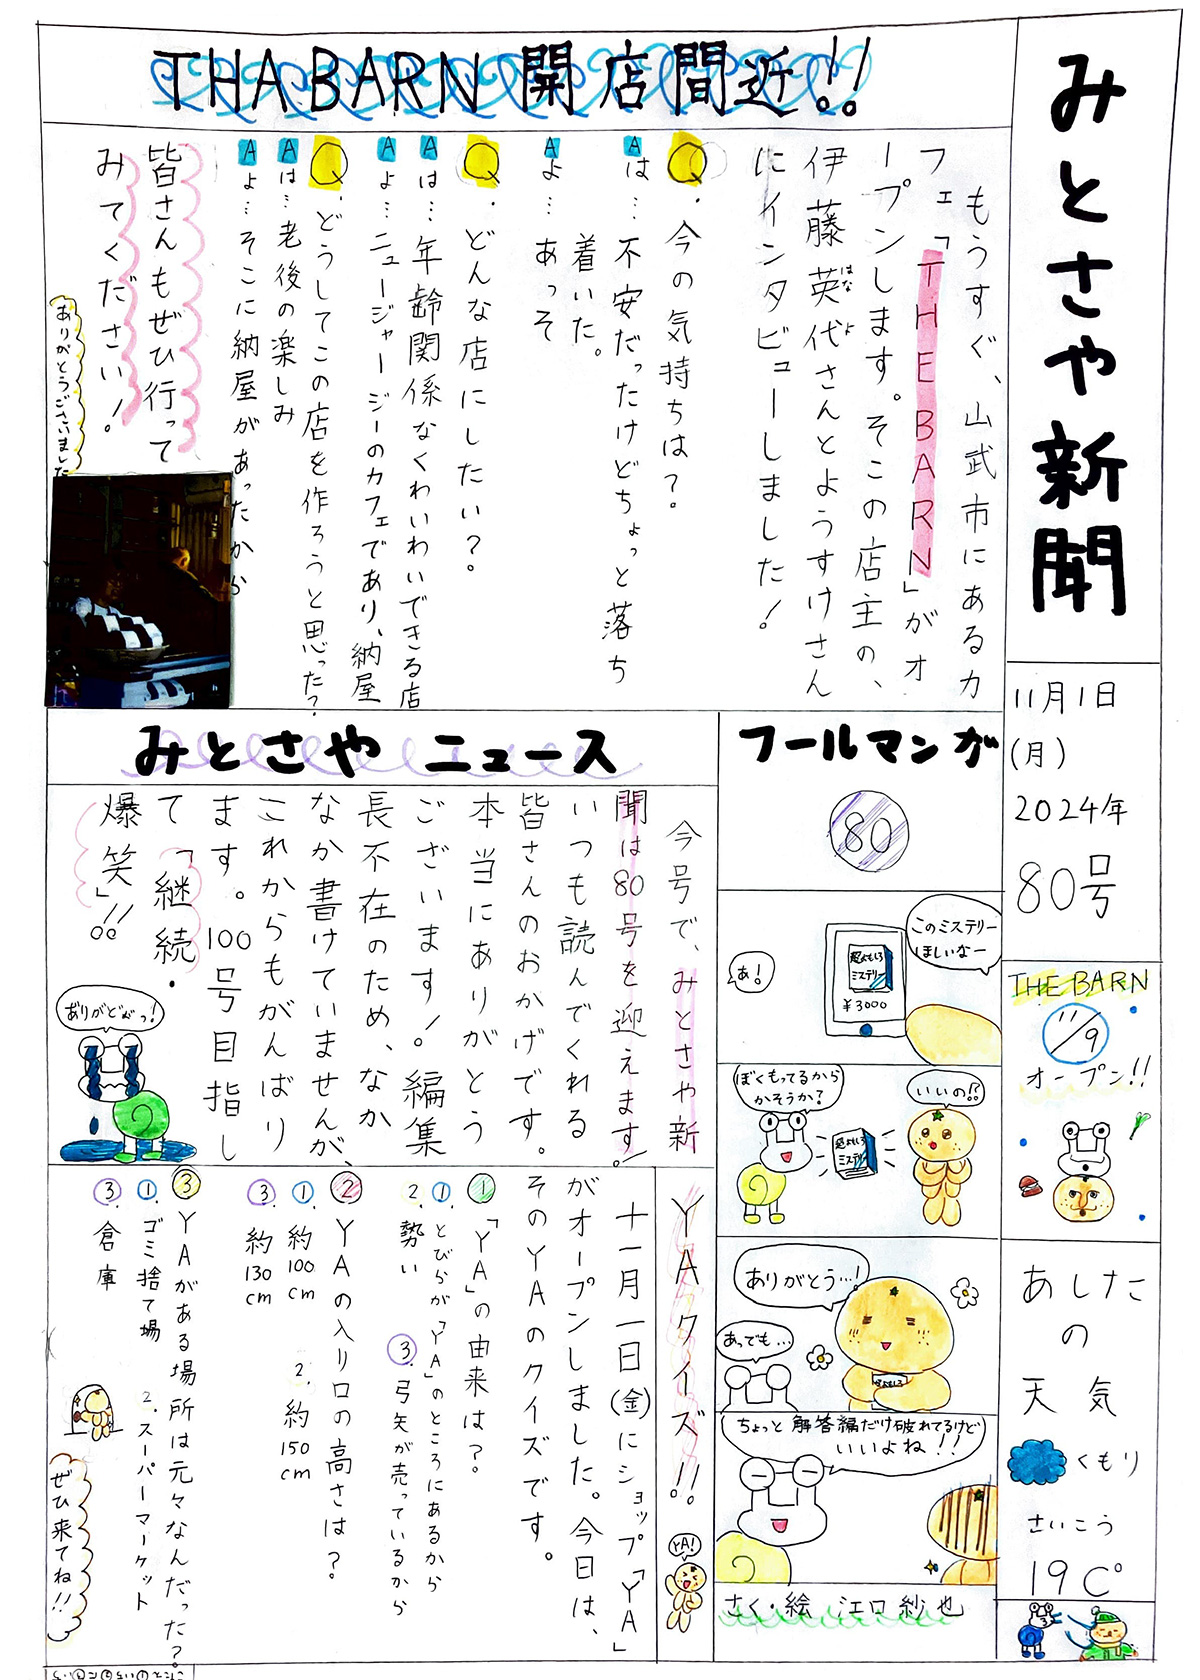 みとさや新聞
11月1日
(月)
2024年
80号
THE BARN
11/9
オープン!!
あしたの
天気
くもり
さいこう
19C°
THA BARN 開店間近!!
もうすぐ、山武市にあるカ
フェ「THE BARN」がオ
ープンします。そこの店主の、
伊藤英代さんとようすけさん
はなよ
にインタビューしました!
Q.今の気持ちは?
Aは…不安だったけどちょっと落ち
着いた。
Aよ…あっそ
Q.どんな店にしたい?
Aは…年齢関係なくわいわいできる店
Aよ…ニュージャージーのカフェであり、納屋
Q.どうしてこの店を作ろうと思った?
Aは…老後の楽しみ
Aよ…そこに納屋があったから
皆さんもぜひ行って
みてください!
ありがとうございました
みとさや ニュース
今号で、みとさや新
聞は80号を迎えます!
いつも読んでくれる
皆さんのおかげです。
本当にありがとう
ございます!編集
長不在のため、なか
なか書けていませんが、
これからもがんばり
ます。100号目指し
て「継続・
爆笑」!!
ありがどぶっ!
フールマンガ
80
このミステリー
ほしいなー
超よもしろ
ミステリー
¥3000
あ!
いいの!?
ぼくもってるから
かそうか?
超よもしろ
ミステリー
ありがとう…!
あっでも…
ちょっと解答編だけ破れてるけど
いいよね!!
さく・絵 江口紗也
YAクイズ!!
YA!
十一月一日(金)にショップ「YA」
がオープンしました。今日は、
そのYAのクイズです。
①「YA」の由来は?
①.とびらが「YA」のところにあるから
2.勢い
③.弓矢が売っているから
②YAの入り口の高さは?
①.約100cm
2.約150cm
③.約130cm
③YAがある場所は元々なんだった?
①.ゴミ捨て場
2.スーパーマーケット
③.倉庫
ぜひ来てね!!